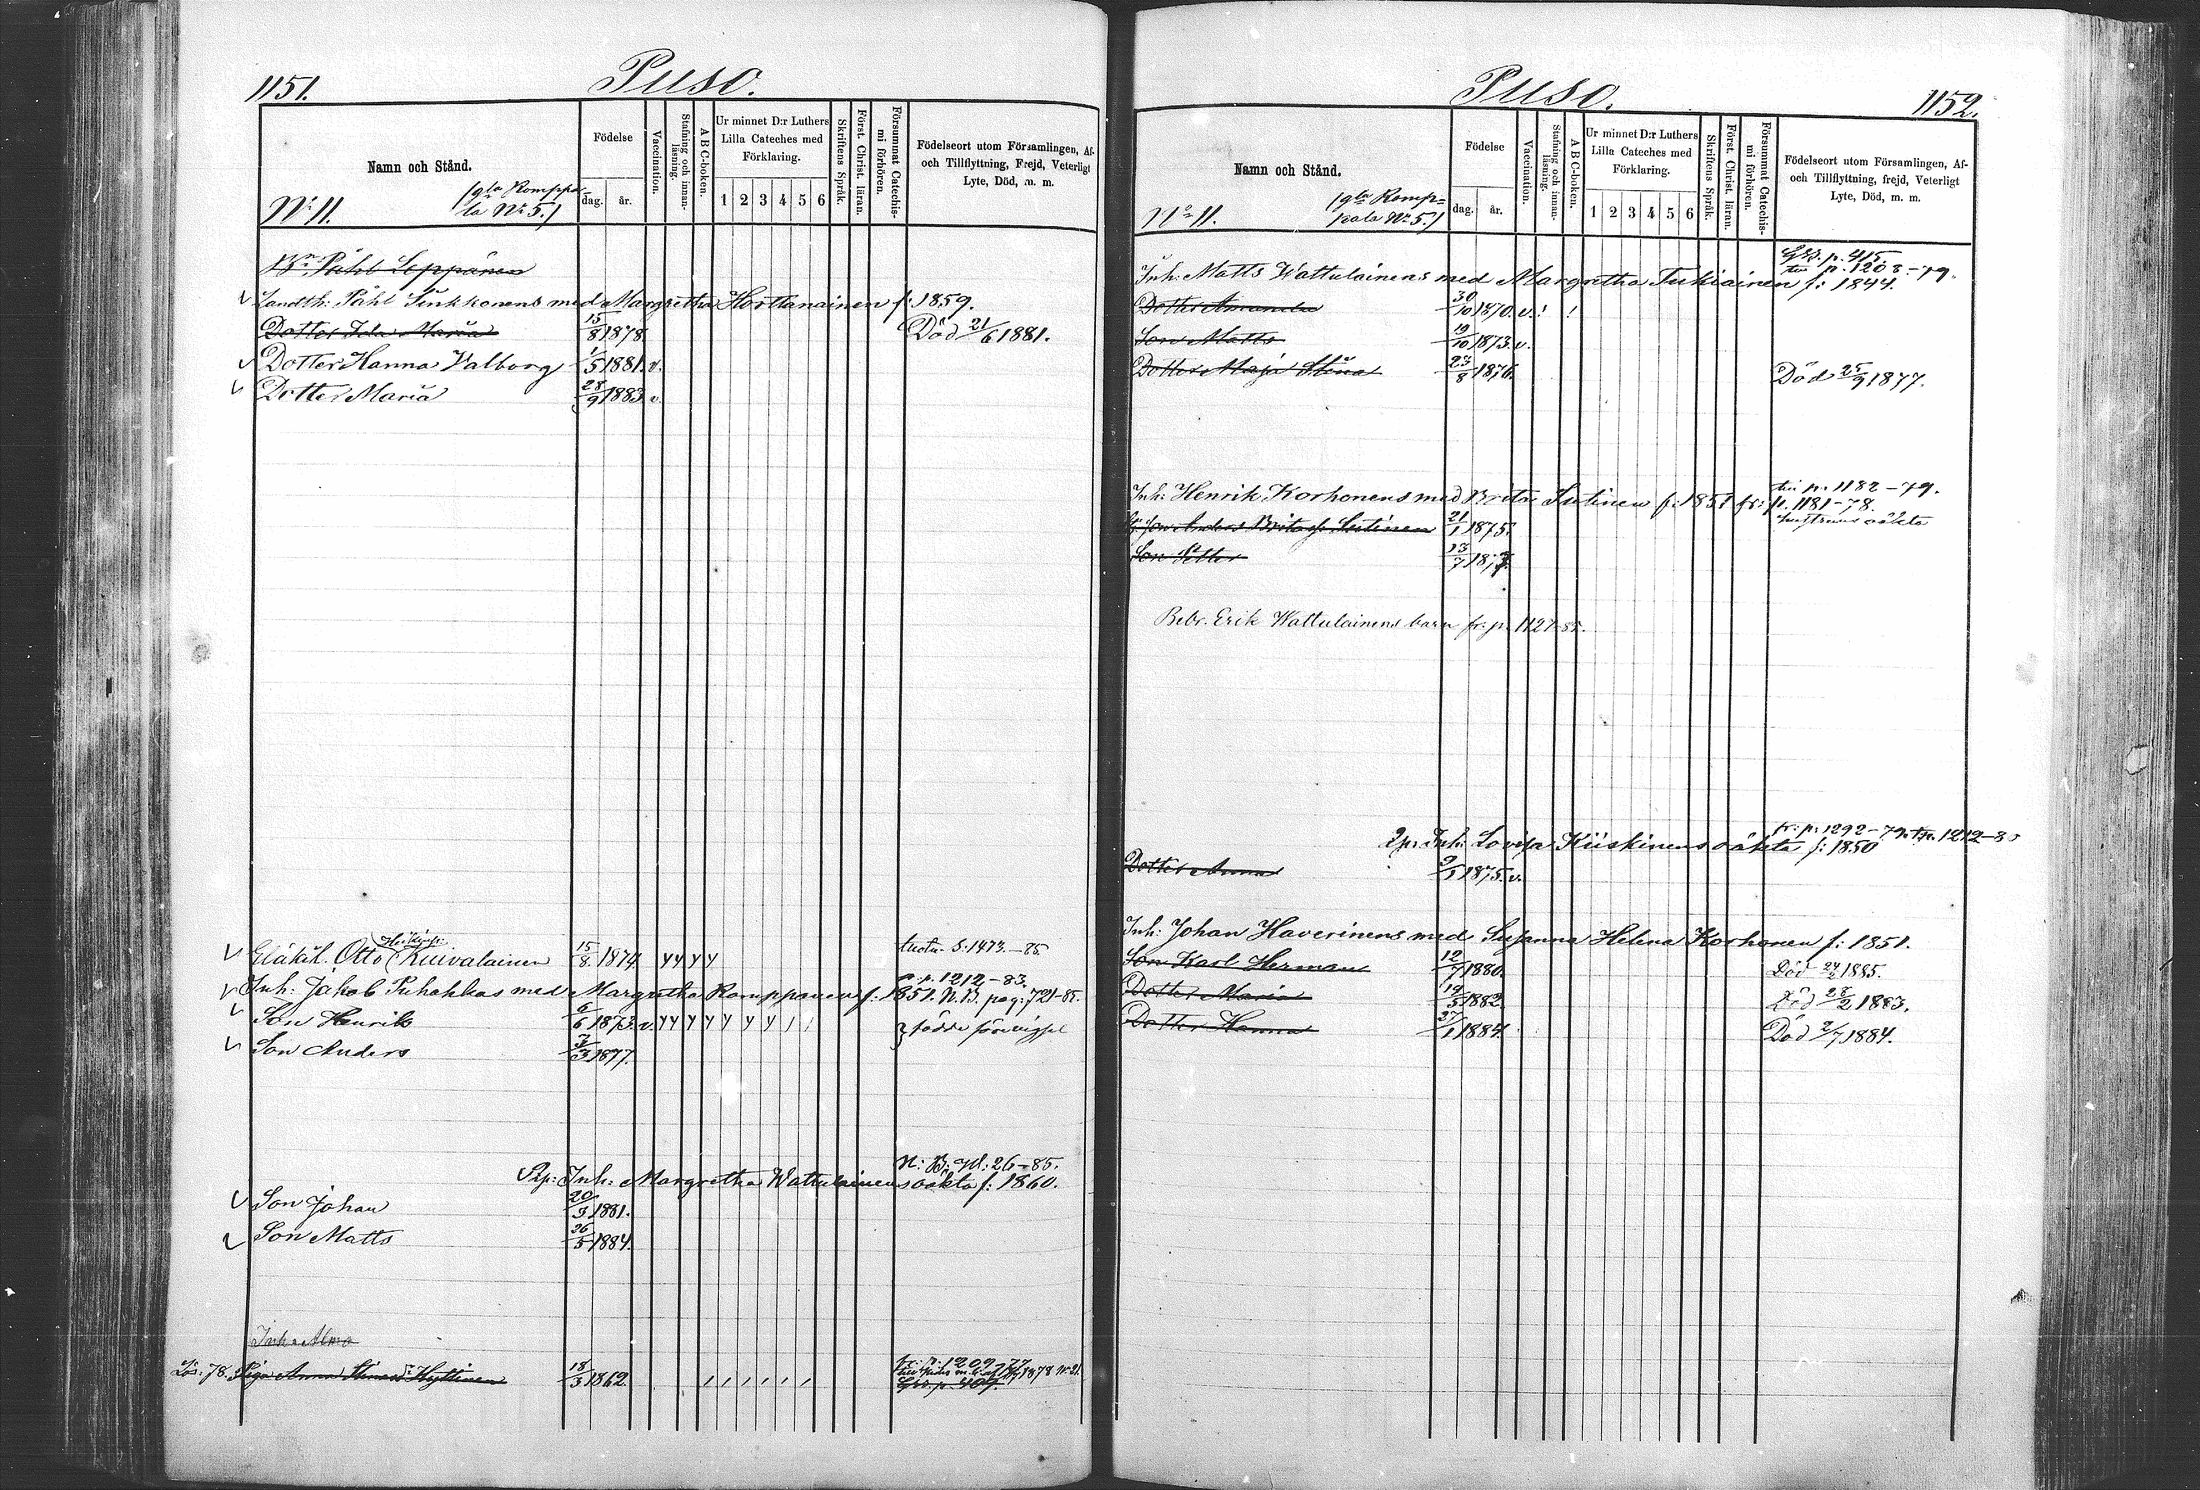 1151.
Puso.
Namn och Stånd.
Födelse
dag.
år.
Vaccination.
Stafning och innanläsning.
A B C-boken.
Ur minnet D:r Luthers
Lilla Cateches med
Förklaring.
1 2 3 4 5 6
Skriftens Språk.
Först. Christ. läran.
Försummat Catechismi förhören.
Födelseort utom Församlingen, Af-
och Tillflyttning, Frejd, Veterligt
Lyte, Död, m. m.
No 11.
la No 5.)
Påhl Leppänen
Landth: Påhl Sinkkonens med Margretha Horttanainen f: 1859.
Dotter Ida Maria 15/8 1878. Död 21/6 1881.
Dotter Hanna Valborg 1/5 1881. v.
Dotter Maria 28/9 1883. v.
Otto Kuivalainen 15/8 1874
p. 1212-83.
Inh: Jakob Puhakkas med Margretha Romppanen f: 1851. N.B. pag: 721-85.
Son Henrik 6/6 1873. v.
Son Anders 1877.
N: B: 26-85.
Inh: Margretha Wattulainens oäkta f: 1860.
Son Johan 20/3 1881.
Son Matts 26/5 1884.
Inh: Alma
Piga Anna 18/3 1862
p. 1209-77
p. 409.
1152.
Puso.
Namn och Stånd.
Födelse
dag.
år.
Vaccination.
Stafning och innanläsning.
A B C-boken.
Ur minnet D:r Luthers
Lilla Cateches med
Förklaring.
1 2 3 4 5 6
Skriftens Språk.
Först. Christ. läran.
Försummat Catechismi förhören.
Födelseort utom Församlingen, Af-
och Tillflyttning, frejd, Veterligt
Lyte, Död, m. m.
No 11.
pala No 5.)
p. 415.
p. 1208-79.
Inh: Matts Wattulainens med Margretha Tukiainen f: 1844.
Dotter Amanda 30/10 1870. v.
Son Matts 19/10 1873. v.
Dotter Maja Stina 23/8 1876. Död 25/9 1877.
p. 1182-79.
Inh: Henrik Korhonens med Brita Sutinen f: 1851 fr: p. 1181-78.
Son Anders 21/1 1875. hustruns oäkta
Son Petter 13/7
Bebr. Erik Wattulainens barn fr: p. 1127-85.
fr: p: 1292-79.
Inh: Lovisa Kiiskinens oäkta f: 1850
Dotter Anna 1875. v.
Inh: Johan Haverinens med Susanna Helena Korhonen f: 1851.
Son Karl Herman 12/7 1880. Död 1885.
Dotter Maria 1882. Död 28/2 1883.
Dotter Hanna 27/1 1884. Död 2/7 1884.